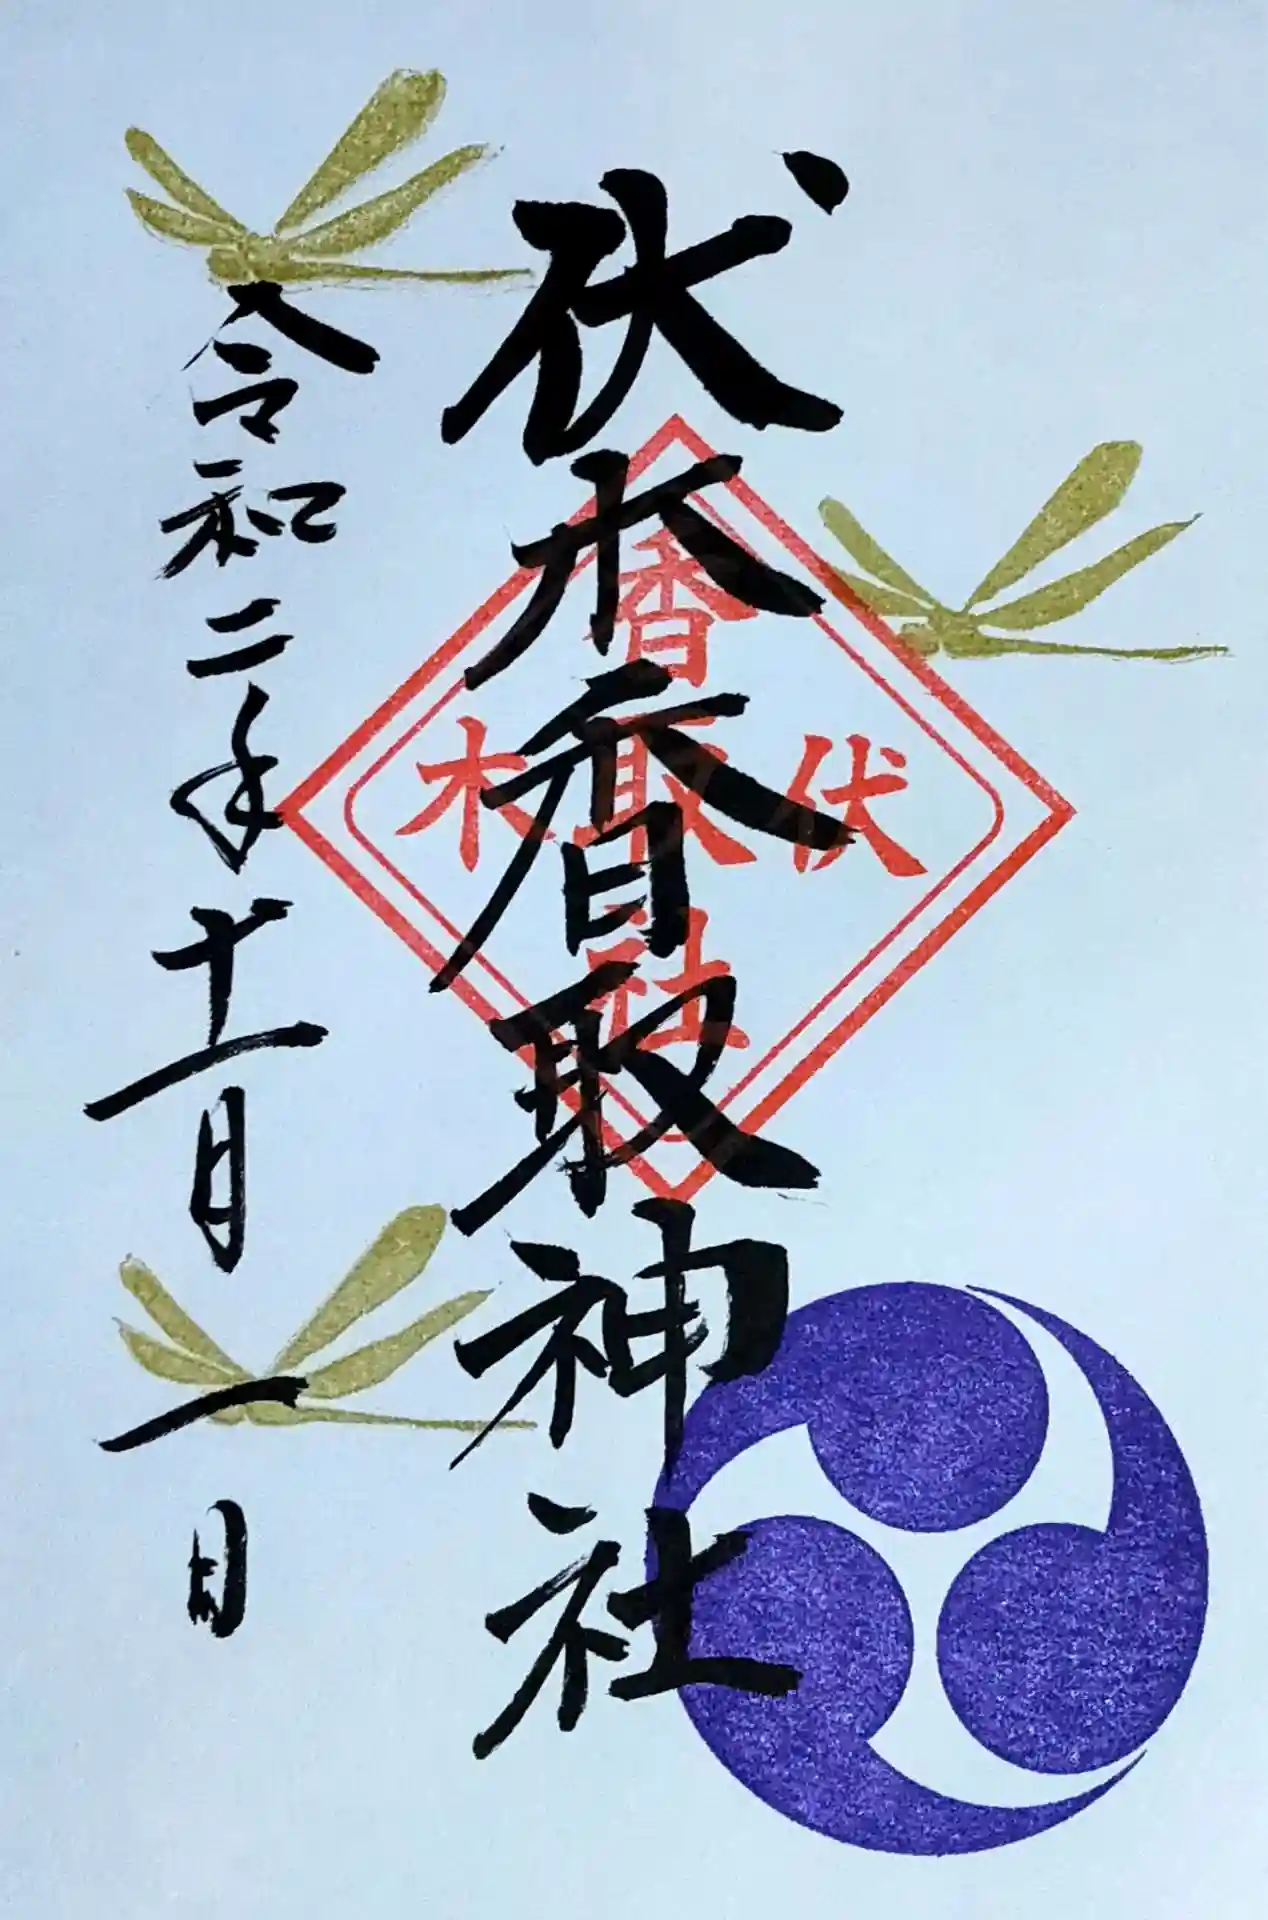 伏木香取神社
令和二年十一月一日
伏 香取社 木